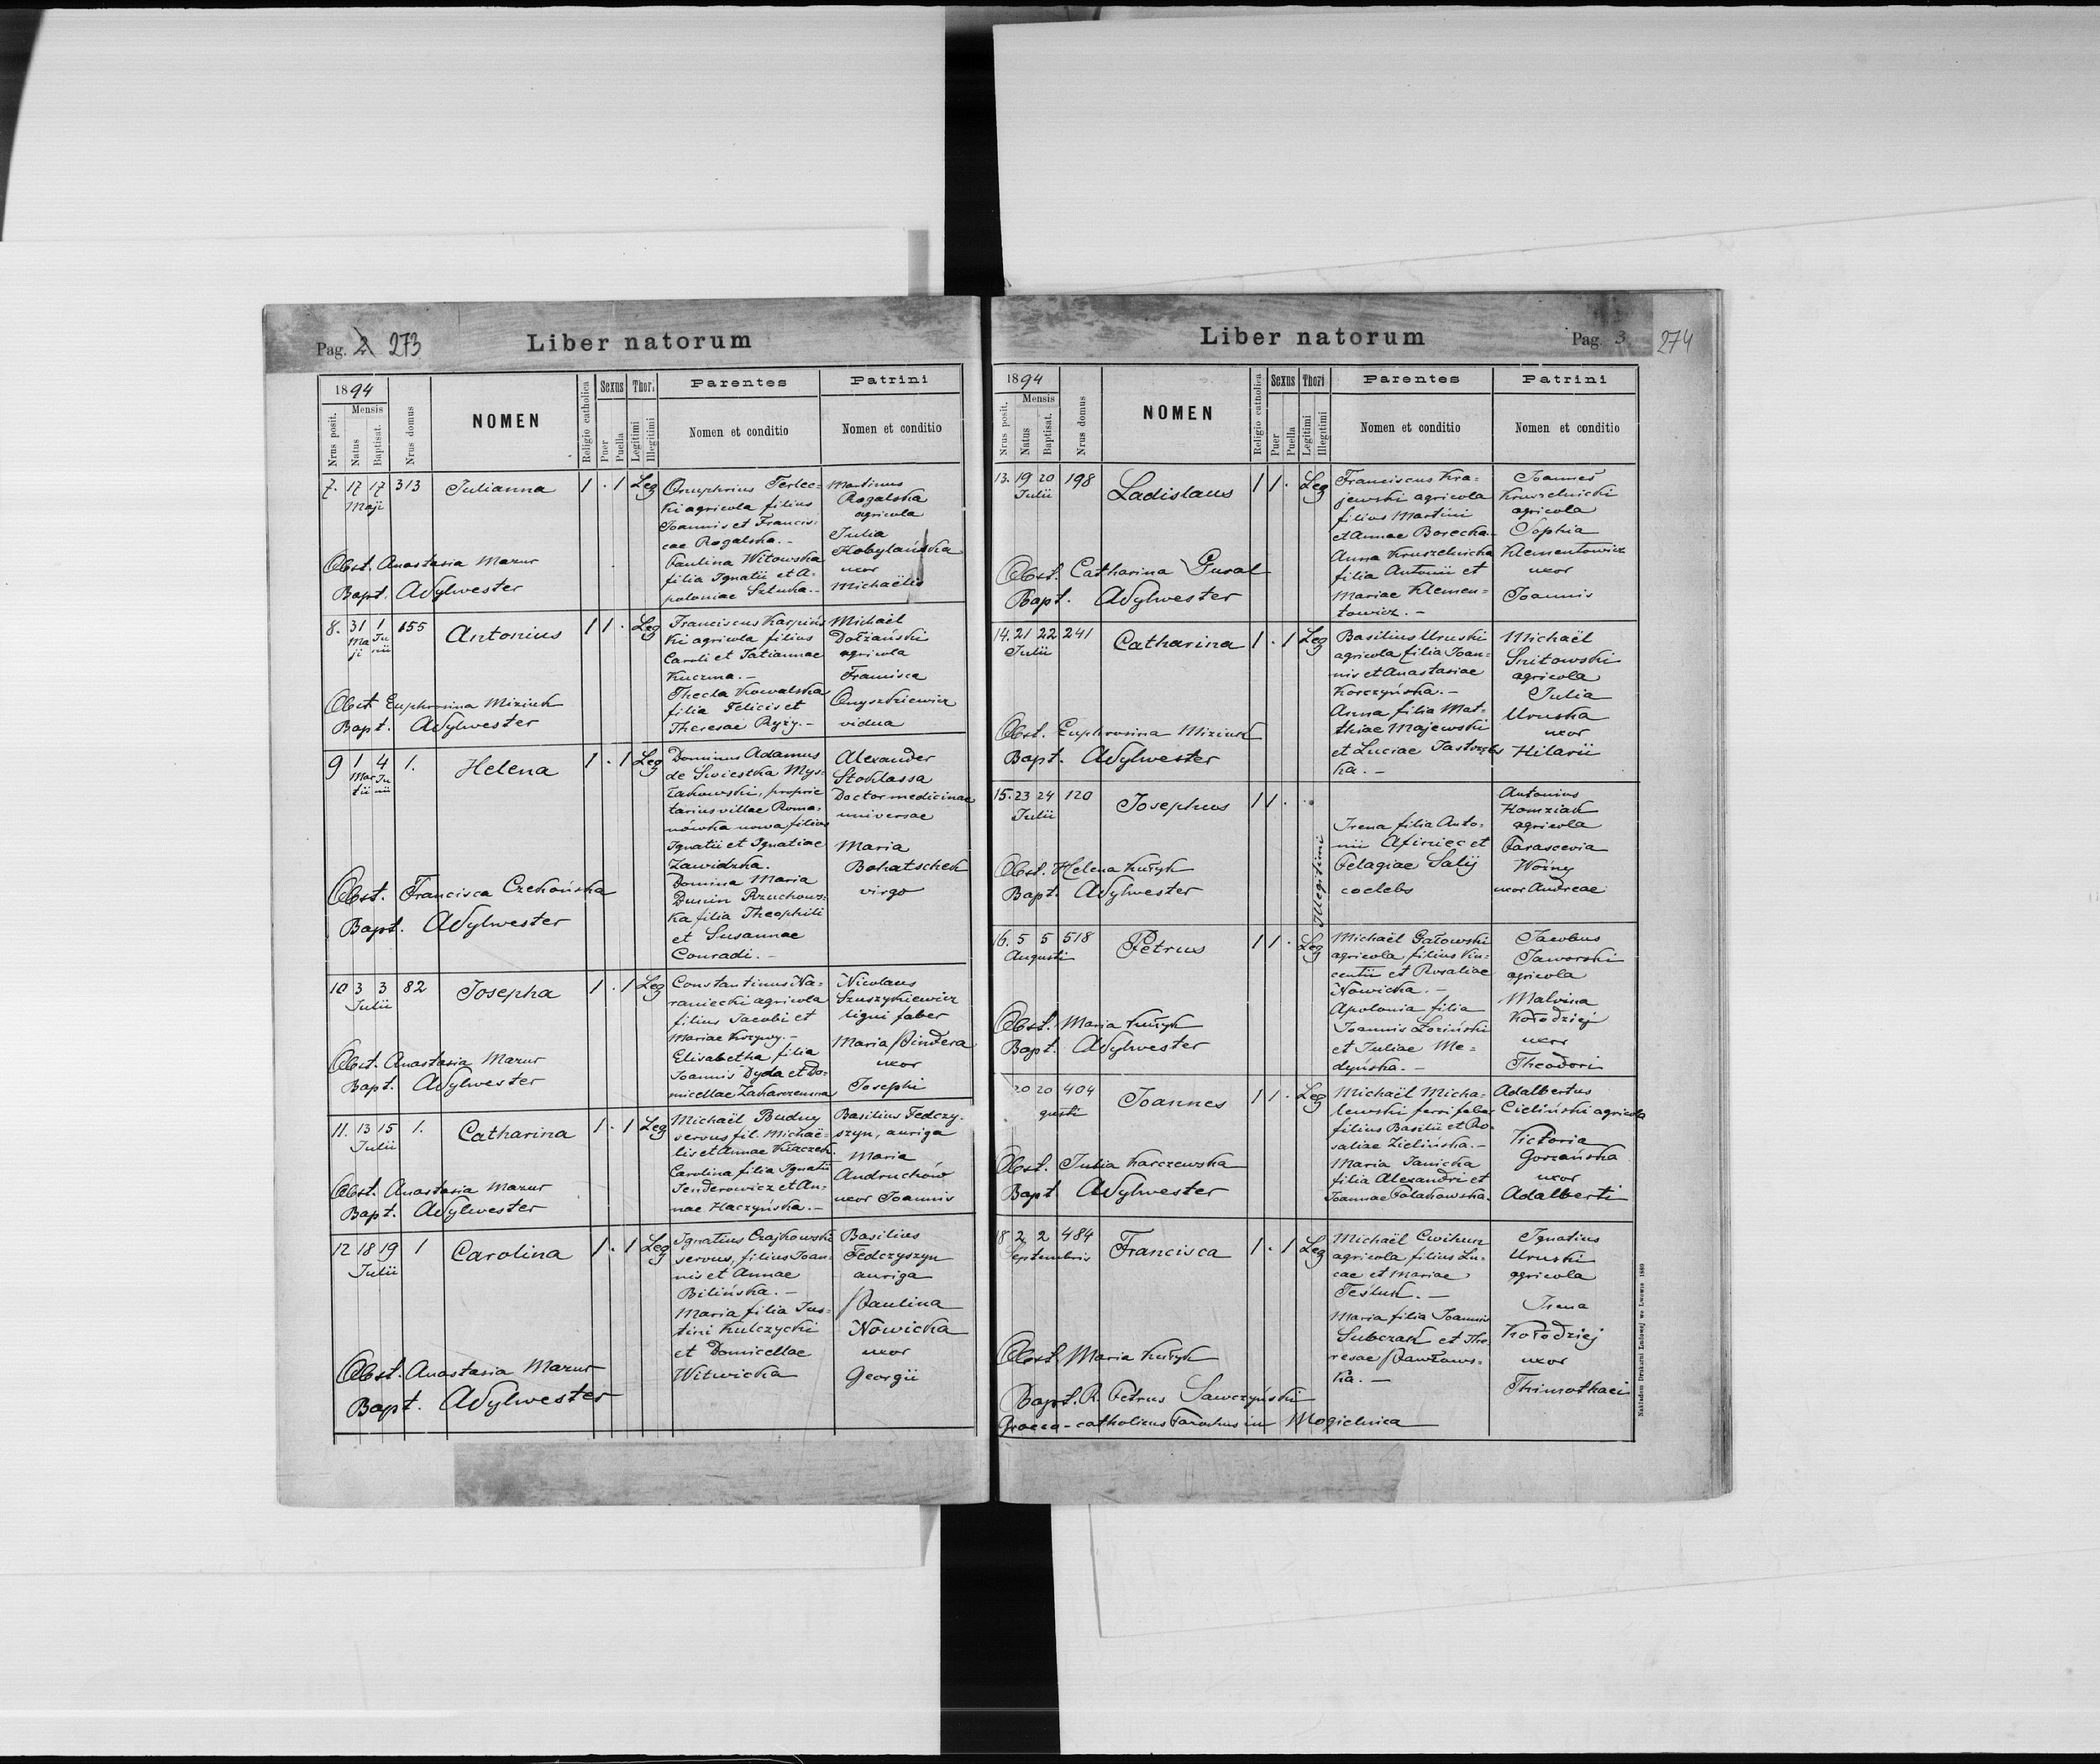 Pag. 2 273
Liber natorum
1894
Mensis
Nrus posit.
Natus
Baptisat.
Nrus domus
NOMEN
Religio catholica
Sexus
Puer
Puella
Thori
Legitimi
Illegitimi
Parentes
Nomen et conditio
Patrini
Nomen et conditio
7. 17 17 313 Julianna 1 . 1 Leg
Maji
Onuphrius Terlec=
ki agricola filius
Joannis et Francis=
cae Rogalska.-
Paulina Witowska
filia Ignatii et A=
poloniae Szluka.-
Martinus
Rogalska
agricola
Julia
Kobylańska
uxor
Michaëlis
Obst. Anastasia Mazur
Bapt. ASylwester
8. 31 1 655 Antonius 1 1 . Leg
Ma Ju
ji nii
Franciscus Karpins
ki agricola filius
Caroli et Tatiannae
Kuczma.-
Thecla Kowalska
filia Felicis et
Theresae Ryży.-
Michaël
Dołżański
agricola
Francisca
Onyszkiewicz
vidua
Obst. Euphrosina Miziuk
Bapt. ASylwester
9 1 4 1. Helena 1 . 1 Leg
Mar Ju
tii nii
Dominus Adamus
de Swiestka Mys=
łakowski, proprie
tarius villae Roma=
nówka nowa filius
Ignatii et Ignatiae
Zawidzka.
Domina Maria
Dunin Rzuchows=
ka filia Theophili
et Susannae
Conradi.-
Alexander
Stoklassa
Doctor medicinae
universae
Maria
Bohatschek
virgo
Obst. Francisca Czekońska
Bapt. ASylwester
10 3 3 82 Josepha 1 . 1 Leg
Julii
Constantinus Na=
raniecki agricola
filius Jacobi et
Mariae Krzywy.-
Elisabetha filia
Joannis Dyda et Do=
micellae
Nicolaus
Szuszykiewicz
ligni faber
Maria Pindera
uxor
Josephi
Obst. Anastasia Mazur
Bapt. ASylwester
11. 13 15 1. Catharina 1 . 1 Leg
Julii
Michaël Budny
servus fil. Michaë=
lis et Annae Kłaczek.
Carolina filia Ignatii
Senderowicz et An=
nae Haczyńska.-
Basilius Fedczy=
szyn, auriga
Maria
Andruchów
uxor Joannis
Obst. Anastasia Mazur
Bapt. ASylwester
12 18 19 1 Carolina 1 . 1 Leg
Julii
Ignatius Czajkowski
servus, filius Joan=
nis et Annae
Bilińska.-
Maria filia Jus=
tini Kulczycki
et Domicellae
Witwicka
Basilius
Fedczyszyn
auriga
Paulina
Nowicka
uxor
Georgii
Obst. Anastasia Mazur
Bapt. ASylwester
Liber natorum
Pag. 3. 274
1894
Mensis
Nrus posit.
Natus
Baptisat.
Nrus domus
NOMEN
Religio catholica
Sexus
Puer
Puella
Thori
Legitimi
Illegitimi
Parentes
Nomen et conditio
Patrini
Nomen et conditio
13. 19 20 198 Ladislaus 1 1 . Leg
Julii
Franciscus Kra=
jewski agricola
filius Martini
et Annae Borecka.
Anna Kruszelnicka
filia Antonii et
Mariae Klemen=
towicz.-
Joannes
Kruszelnicki
agricola
Sophia
Klementowicz
uxor
Joannis
Obst. Catharina Gural
Bapt. ASylwester
14. 21 22 241 Catharina 1 . 1 Leg
Julii
Basilius Uruski
agricola filia Joan=
nis et Anastasiae
Korczyńska.-
Anna filia Mat=
thiae Majewski
et Luciae Jastrzębs
ka.-
Michaël
Snitowski
agricola
Julia
Uruska
uxor
Hilarii
Obst. Euphrosina Miziuk
Bapt. ASylwester
15. 23 24 120 Josephus 1 1 . .
Julii
Illegitimi
Irena filia Anto=
nii Afiniec et
Pelagiae Salij
coelebs
Antonius
Homziak
agricola
Parascevia
Woźny
uxor Andreae
Obst. Helena Kuryk
Bapt. ASylwester
16. 5 5 518 Petrus 1 1 . Leg
Augusti
Michaël Gatowski
agricola filius Vin=
centii et Rosaliae
Nowicka.-
Apolonia filia
Joannis Łoziński
et Juliae Me=
dyńska.-
Jacobus
Jaworski
agricola
Malvina
Kołodziej
uxor
Theodori
Obst. Maria Kuryk
Bapt. ASylwester
20 20 404 Joannes 1 1 . Leg
gusti
Michaël Micha=
lewski ferri faber
filius Basilii et Ro=
saliae Zielińska.-
Maria Janicka
filia Alexandri et
Joannae Polakowska.
Adalbertus
Cieliński agricola
Victoria
Gorzańska
uxor
Adalberti
Obst. Julia Karczewska
Bapt ASylwester
18 2 2 484 Francisca 1 . 1 Leg
Septembris
Michaël Cwihun
agricola filius Lu=
cae et Mariae
Tesluk.-
Maria filia Joannis
Subczak et The=
resae Pawłows=
ka.-
Ignatius
Uruski
agricola
Irena
Kołodziej
uxor
Thimothaei
Obst. Maria Kuryk
Bapt. R. Petrus Sawczyński
Graeco-catholicus Parochus in Mogielnica
Nakładem Drukarni Ludowej we Lwowie 1889